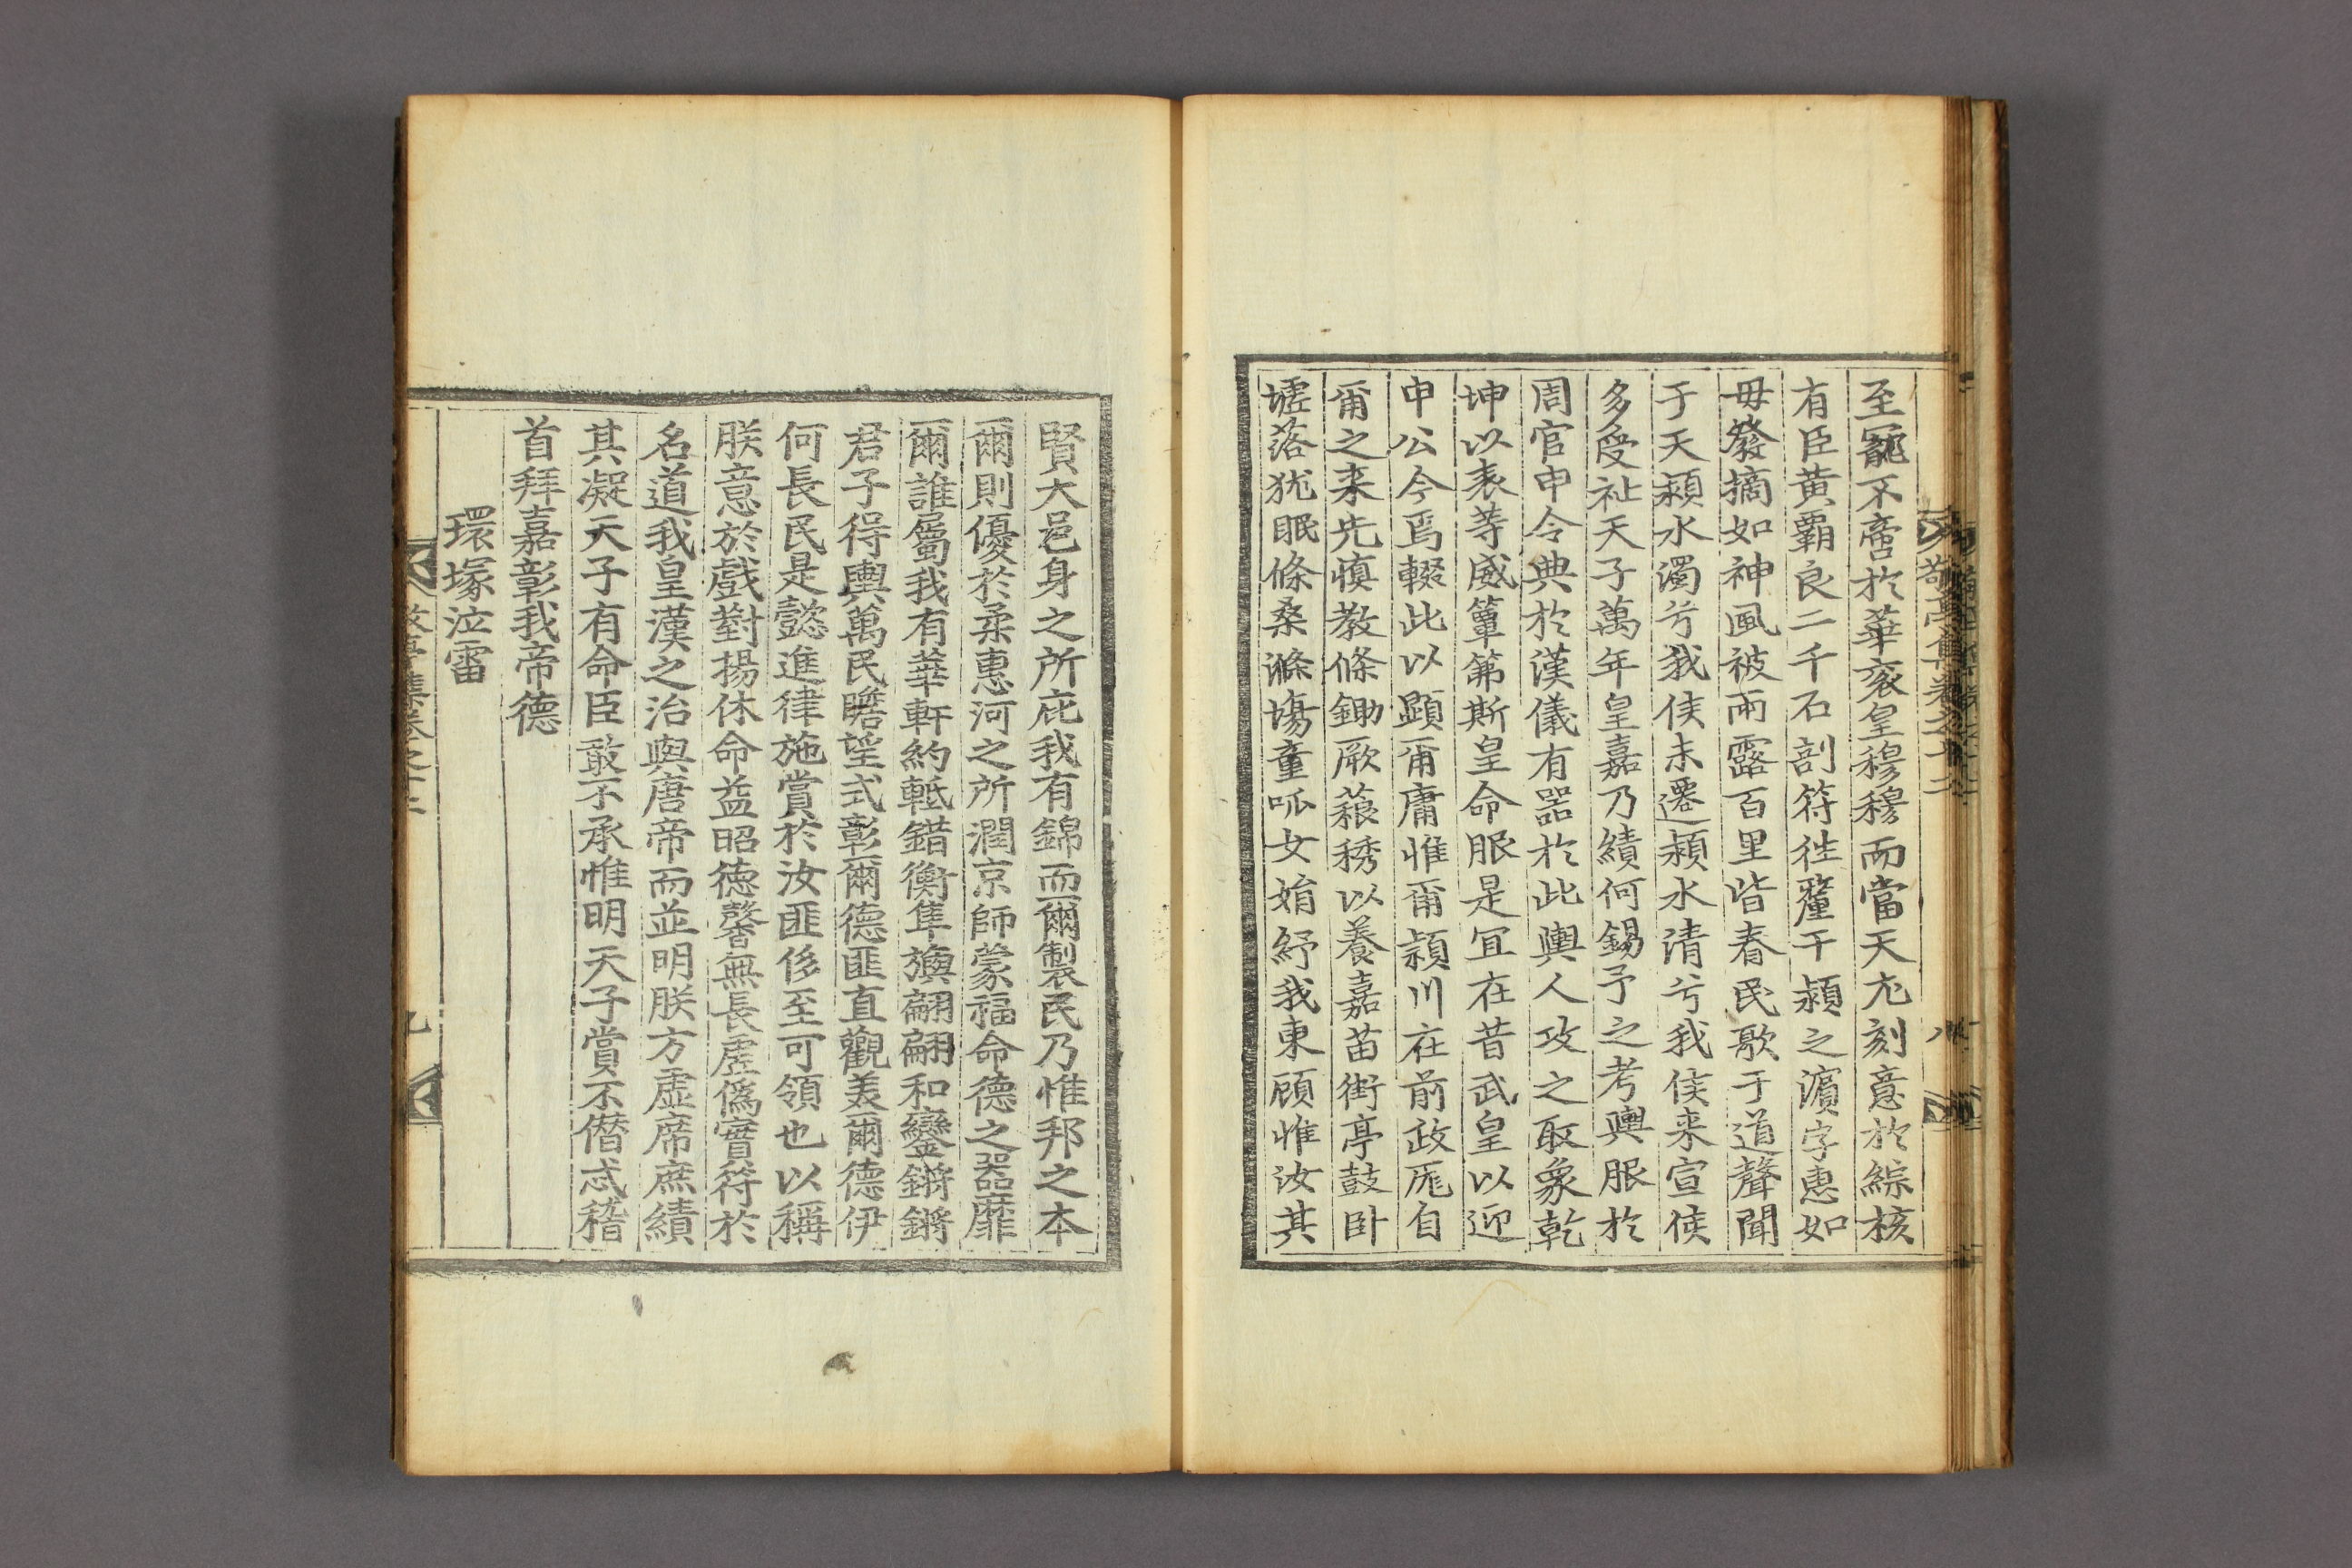 至寵不啻於華衮皇穆穆而當天尤刻意於綜核
有臣黃覇良二千石剖符徃釐于潁之濵字惠如
毋發摘如神風被雨露百里皆春民歌于道聲聞
于天潁水濁兮我侯未遷潁水清兮我侯来宣侯
多受祉天子萬年皇嘉乃績何錫予之考輿服於
周官申令典於漢儀有噐於此輿人攻之取象乾
坤以表等威簟第斯皇命服是冝在昔武皇以迎
申公今焉輟此以顯甭庸惟甭潁川在前政厖自
甭之来先慎教條鋤厥蒗稂以養嘉苗街亭鼓卧
墟落犹眠條桑滌場童呱女娟紓我東顧惟汝其
賢大邑身之所庇我有錦而爾製民乃惟邦之本
爾則優於柔惠河之所潤京師蒙福命德之器靡
爾誰屬我有華軒約軧錯衡隼旟翩翩和鑾鏘鏘
君子得輿萬民瞻望式彰爾德匪直觀美爾德伊
何長民是懿進律施賞於汝匪侈至可領也以稱
朕意於戲對揚休命益昭德馨無長虛僞實符於
名道我皇漢之治與唐帝而並明朕方虛席庶績
其凝天子有命臣敢不承惟明天子賞不僣忒稽
首拜嘉彰我帝德
環塚泣雷
敬亭集卷之十二
九
八